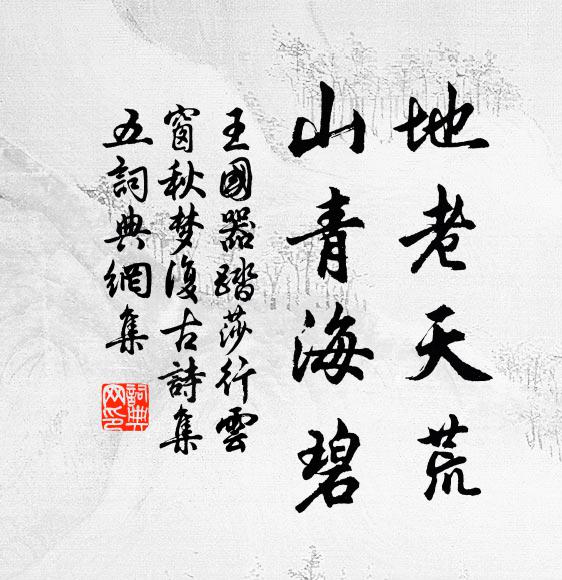 地老天荒
山青海碧
王國器踏莎行雲
窗秋梦復古詩集
五詞典網集
詞典網印